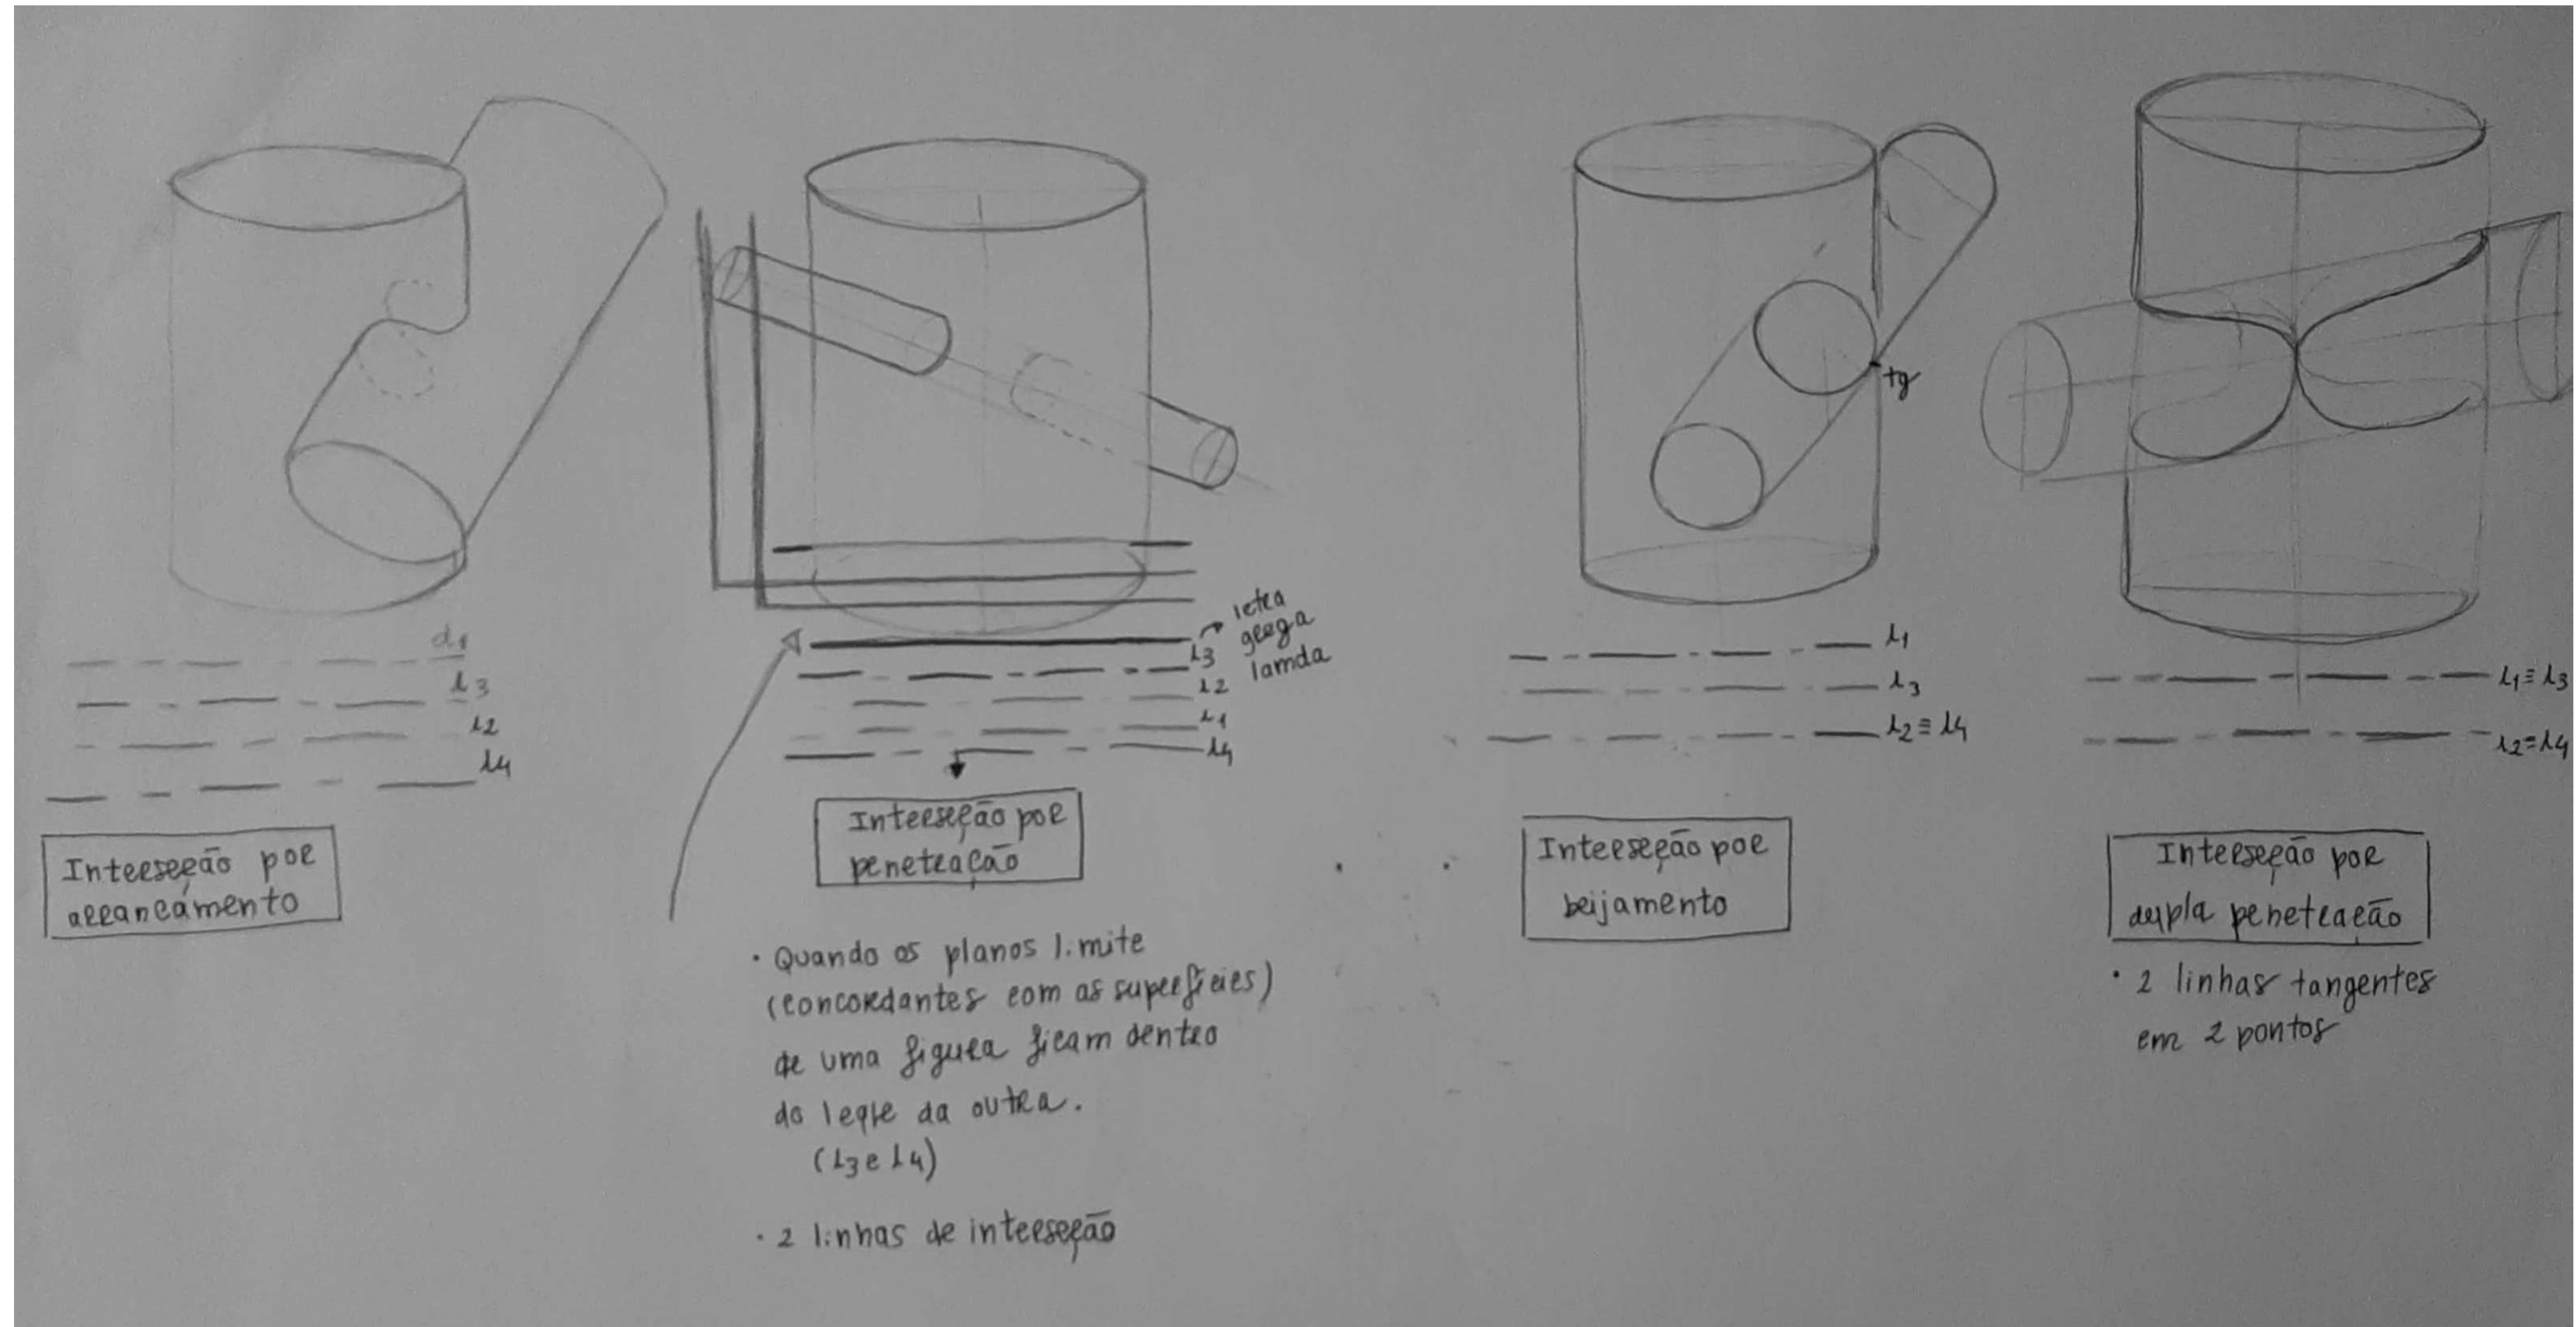 d1
λ3
λ2
λ4
Interseção por
arrancamento
letra
grega
lamda
λ3
λ2
λ1
λ4
Interseção por
penetração
· Quando os planos limite
(concordantes com as superfícies)
de uma figura ficam dentro
do leqre da outra.
(λ3 e λ4)
· 2 linhas de interseção
tg
λ1
λ3
λ2 ≡ λ4
Interseção por
beijamento
λ1 ≡ λ3
λ2 = λ4
Interseção por
dupla penetração
· 2 linhas tangentes
em 2 pontos